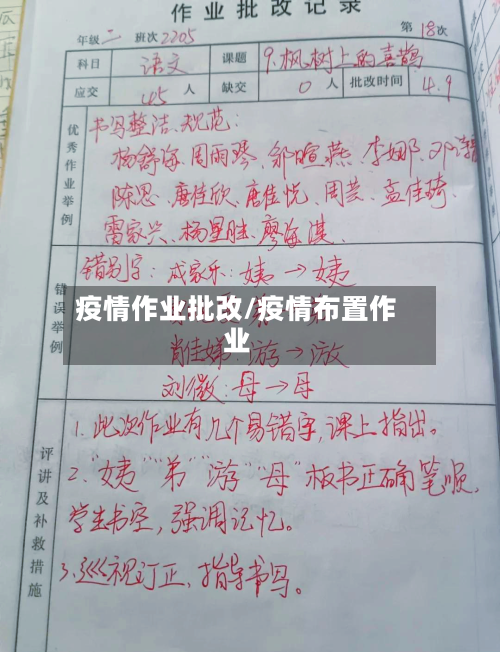 作业批改记录
年级 二 班次 2205 第 18 次
科目 语文 课题 9.枫树上的喜鹊
应交 45 人 缺交 0 人 批改时间 4.9
优秀作业举例
书写整洁、规范:
杨舒海、周雨琴、邹暄燕、李娜、邓
陈思、唐佳欣、唐佳悦、周芸、孟佳琦、
雷家兴、杨星胜、廖海淇、
错误举例
错别字:成家乐:姨→姨
疫情作业批改/疫情布置作
业
肖佳娣:游→游
刘微:母→母
评讲及补救措施
1.此次作业有几个易错字,课上指出。
2."姨""弟""游""母"板书正确笔顺,
学生书空,强调记忆。
3.巡视订正,指导书写。